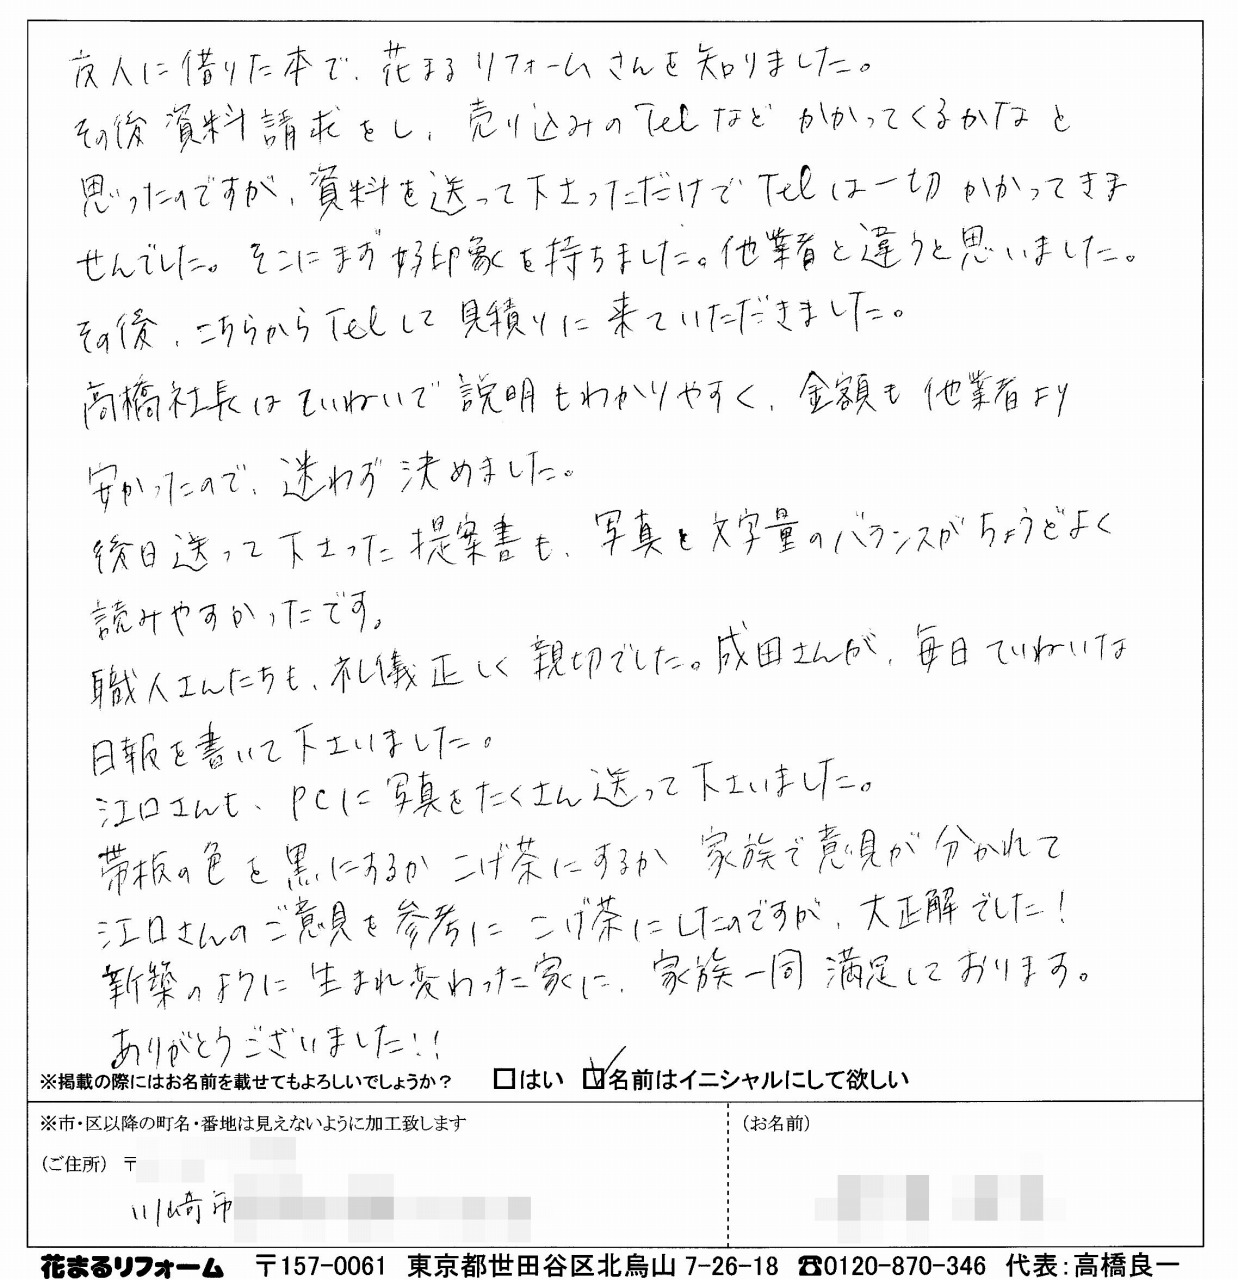 友人に借りた本で、花まるリフォームさんを知りました。
その後資料請求をし、売り込みのTelなどかかってくるかなと
思ったのですが、資料を送って下さっただけでTelは一切かかってきま
せんでした。そこにまず好印象を持ちました。他業者と違うと思いました。
その後、こちらからTelして見積りに来ていただきました。
高橋社長はていねいで説明もわかりやすく、金額も他業者より
安かったので、迷わず決めました。
後日送って下さった提案書も、写真と文字量のバランスがちょうどよく
読みやすかったです。
職人さんたちも、礼儀正しく親切でした。成田さんが、毎日ていねいな
日報を書いて下さいました。
江口さんも、PCに写真をたくさん送って下さいました。
帯板の色を黒にするかこげ茶にするか家族で意見が分かれて
江口さんのご意見を参考にこげ茶にしたのですが、大正解でした!
新築のように生まれ変わった家に、家族一同満足しております。
ありがとうございました!!
※掲載の際にはお名前を載せてもよろしいでしょうか? □はい □名前はイニシャルにして欲しい
※市・区以降の町名・番地は見えないように加工致します (お名前)
(ご住所) 〒
川崎市
花まるリフォーム 〒157-0061 東京都世田谷区北烏山 7-26-18 ☎0120-870-346 代表:高橋良一